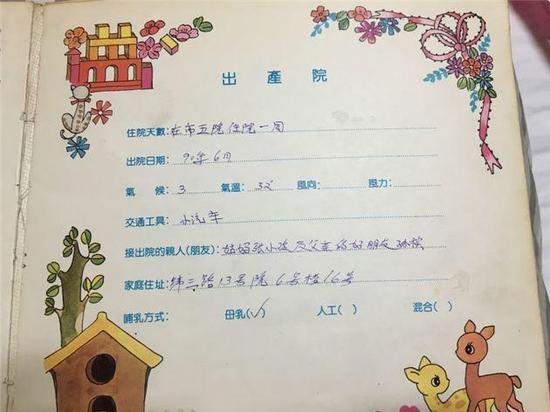 出產院
住院天數:在市五院住院一周
出院日期:90年6月
氣 候:3 氣溫:32° 風向: 風力:
交通工具:小汽车
接出院的親人(朋友):姑姑张小波及父亲的好朋友孙
家庭住址:纬三路13号院6号楼16号
哺乳方式: 母乳(✓) 人工( ) 混合( )